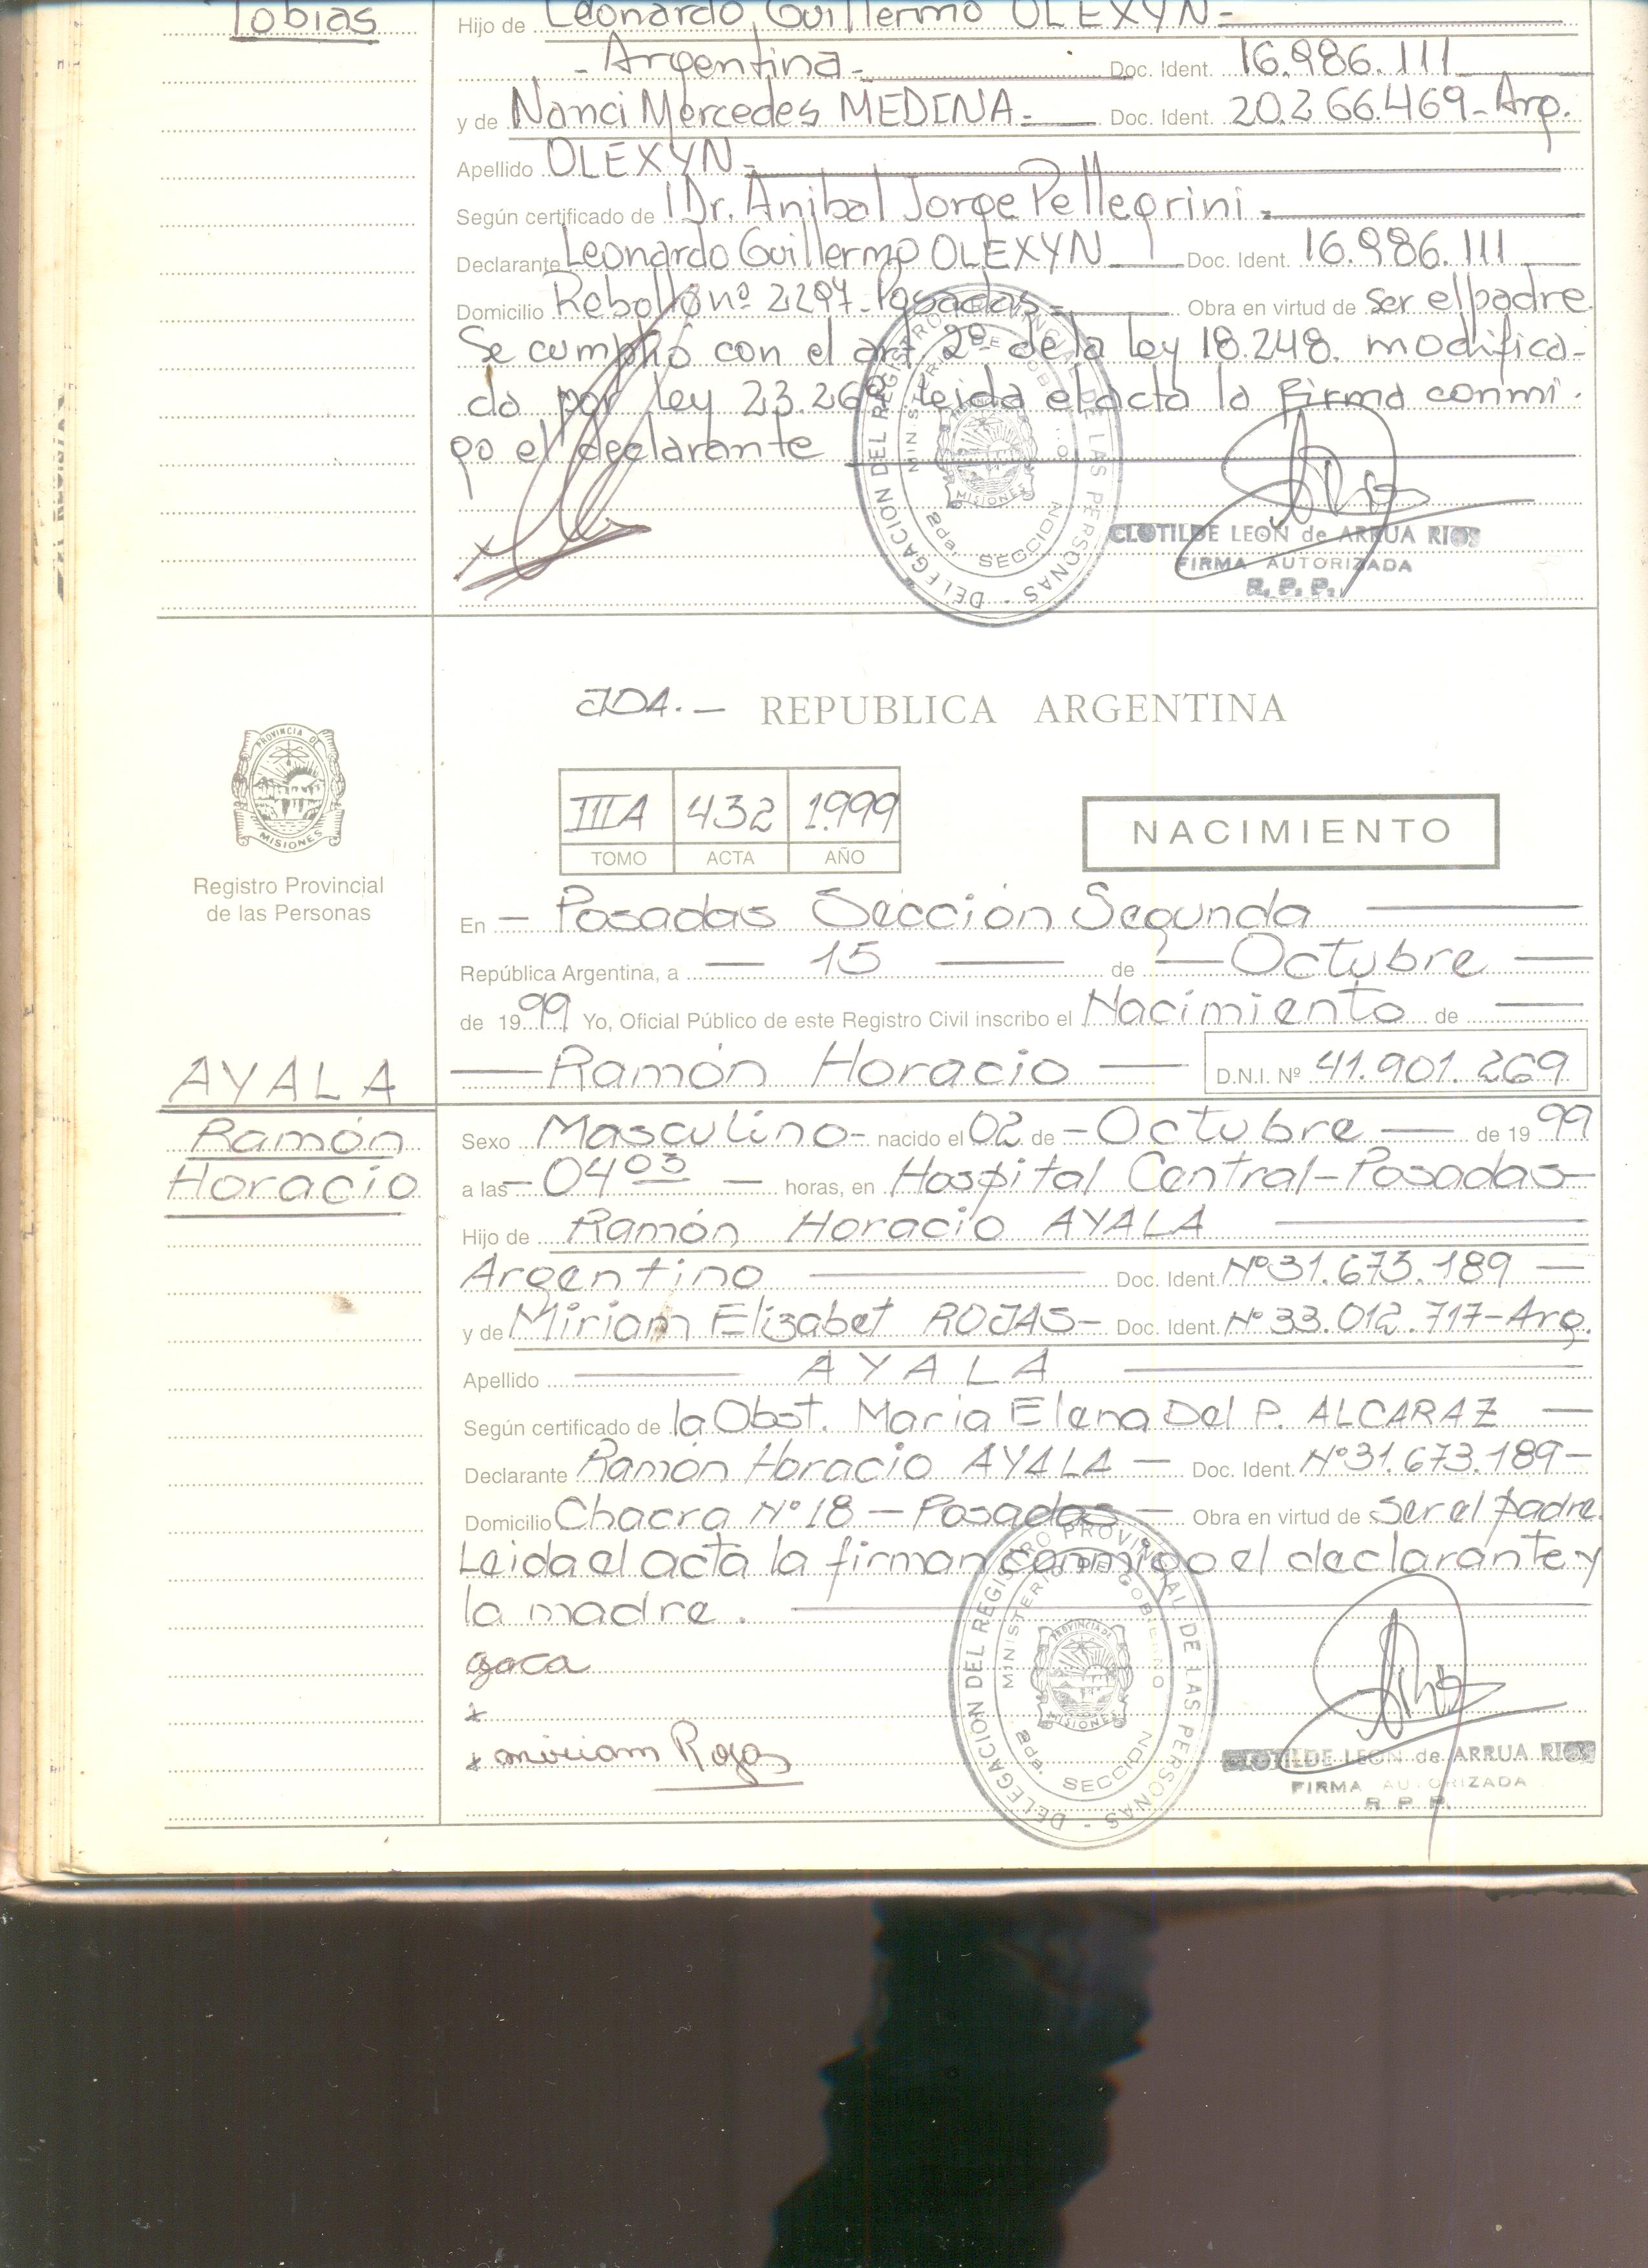 Tobias
Hijo de Leonardo Guillermo OLEXYN-
- Argentina - Doc. Ident. 16.986.111
y de Nanci Mercedes MEDINA - Doc. Ident. 20.266.469- Arg.
Apellido OLEXYN -
Según certificado de Dr. Anibal Jorge Pellegrini -
Declarante Leonardo Guillermo OLEXYN Doc. Ident. 16.986.111
Domicilio Rebollo nº 2297- Posadas - Obra en virtud de ser el padre.
Se cumplió con el art. 2º de la ley 18.248. modifica-
da por ley 23.269 leida el acta la firma conmi.
go el declarante
DELEGACION DEL REGISTRO PROVINCIAL DE LAS PERSONAS -
MINISTERIO DE GOBIERNO
MISIONES
2da. SECCION
CLOTILDE LEON de ARRUA RIOS
FIRMA AUTORIZADA
R. P. P.
JDA.- REPUBLICA ARGENTINA
PROVINCIA DE
MISIONES
Registro Provincial
de las Personas
IIIA 432 1.999
TOMO ACTA AÑO
NACIMIENTO
En - Posadas Sección Segunda
República Argentina, a - 15 - de - Octubre -
de 1999 Yo, Oficial Público de este Registro Civil inscribo el Nacimiento de -
AYALA
- Ramón Horacio - D.N.I. Nº 41.901.269
Ramón
Horacio
Sexo Masculino- nacido el 02 de - Octubre - de 1999
a las - 04 03 - horas, en Hospital Central-Posadas-
Hijo de Ramón Horacio AYALA
Argentino - Doc. Ident. Nº 31.673.189 -
y de Miriam Elizabet ROJAS- Doc. Ident. Nº 33.012.717-Arg.
Apellido - AYALA -
Según certificado de la Obst. Maria Elena Del P. ALCARAZ -
Declarante Ramón Horacio AYALA - Doc. Ident. Nº 31.673.189-
Domicilio Chacra Nº 18 - Posadas - Obra en virtud de Ser el padre.
Leida el acta la firman conmigo el declarante y
la madre.
x
x miriam Rojas
DELEGACION DEL REGISTRO PROVINCIAL DE LAS PERSONAS -
MINISTERIO DE GOBIERNO
PROVINCIA DE
MISIONES
2da. SECCION
CLOTILDE LEON de ARRUA RIOS
FIRMA AUTORIZADA
R. P. P.